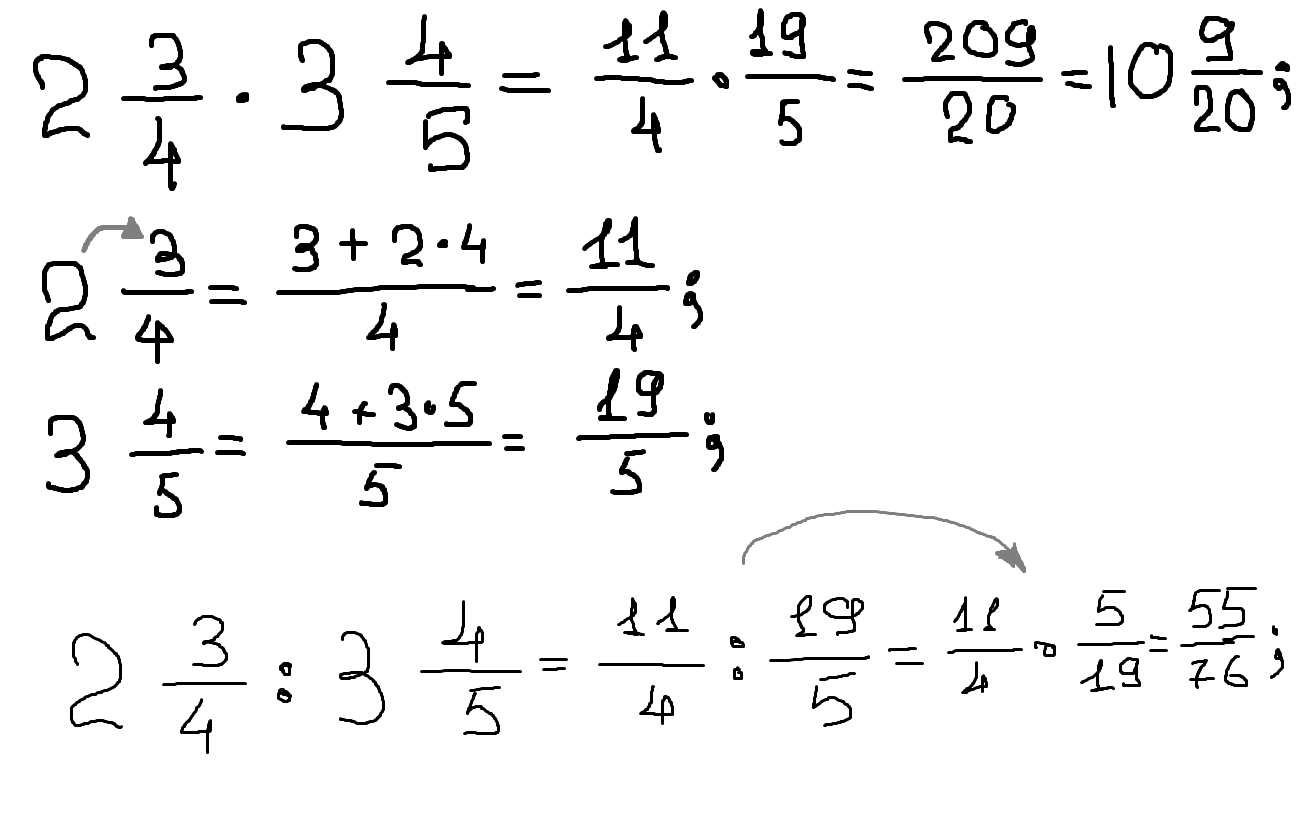 2 3/4 · 3 4/5 = 11/4 · 19/5 = 209/20 = 10 9/20;
2 3/4 = (3 + 2·4)/4 = 11/4;
3 4/5 = (4 + 3·5)/5 = 19/5;
2 3/4 : 3 4/5 = 11/4 : 19/5 = 11/4 · 5/19 = 55/76;